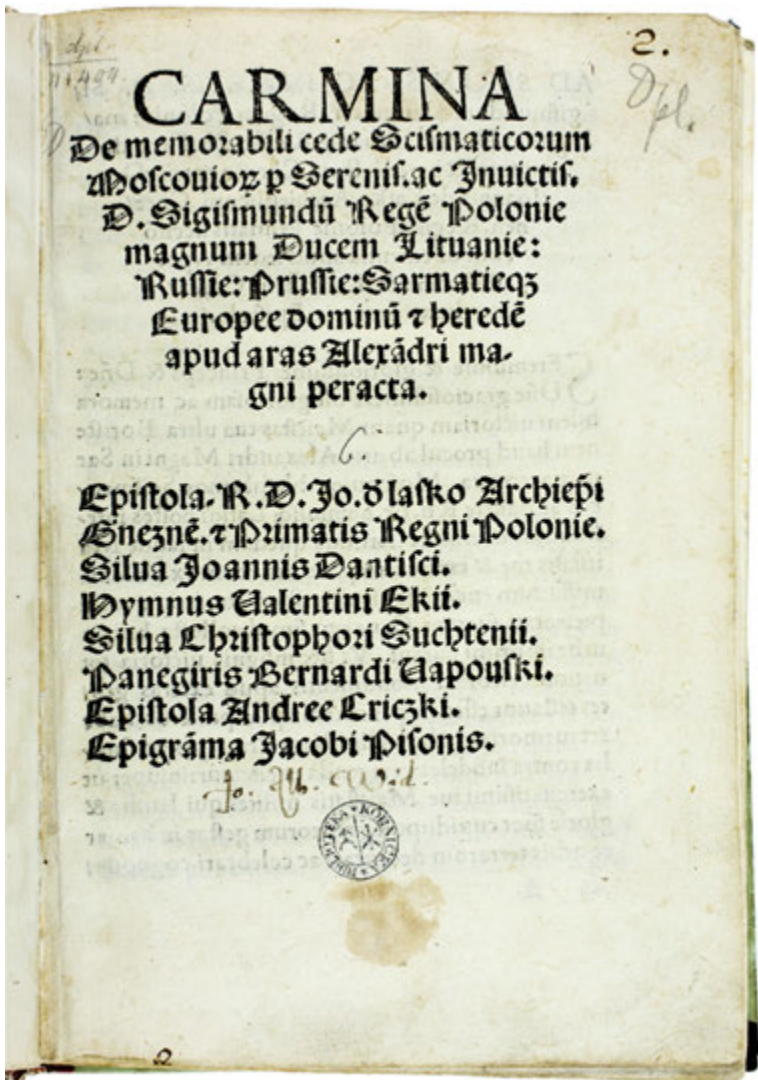 2.
CARMINA
De memorabili cede Scismaticorum
Moscouioꝝ ꝑ Serenis. ac Inuictis.
D. Sigismundũ Regẽ Polonie
magnum Ducem Lituanie:
Russie: Prussie: Sarmatieqꝫ
Europee dominũ ⁊ heredẽ
apud aras Alexãdri ma-
gni peracta.
6.
Epistola. R. D. Jo. đ lasko Archiep̃i
Gneznẽ. ⁊ Primatis Regni Polonie.
Silua Joannis Dantisci.
Hymnus Ualentini Ekii.
Silua Christophori Suchtenii.
Panegiris Bernardi Uapouski.
Epistola Andree Criczki.
Epigrãma Jacobi Pisonis.
BIBLIOTEKA KÓRNICKA